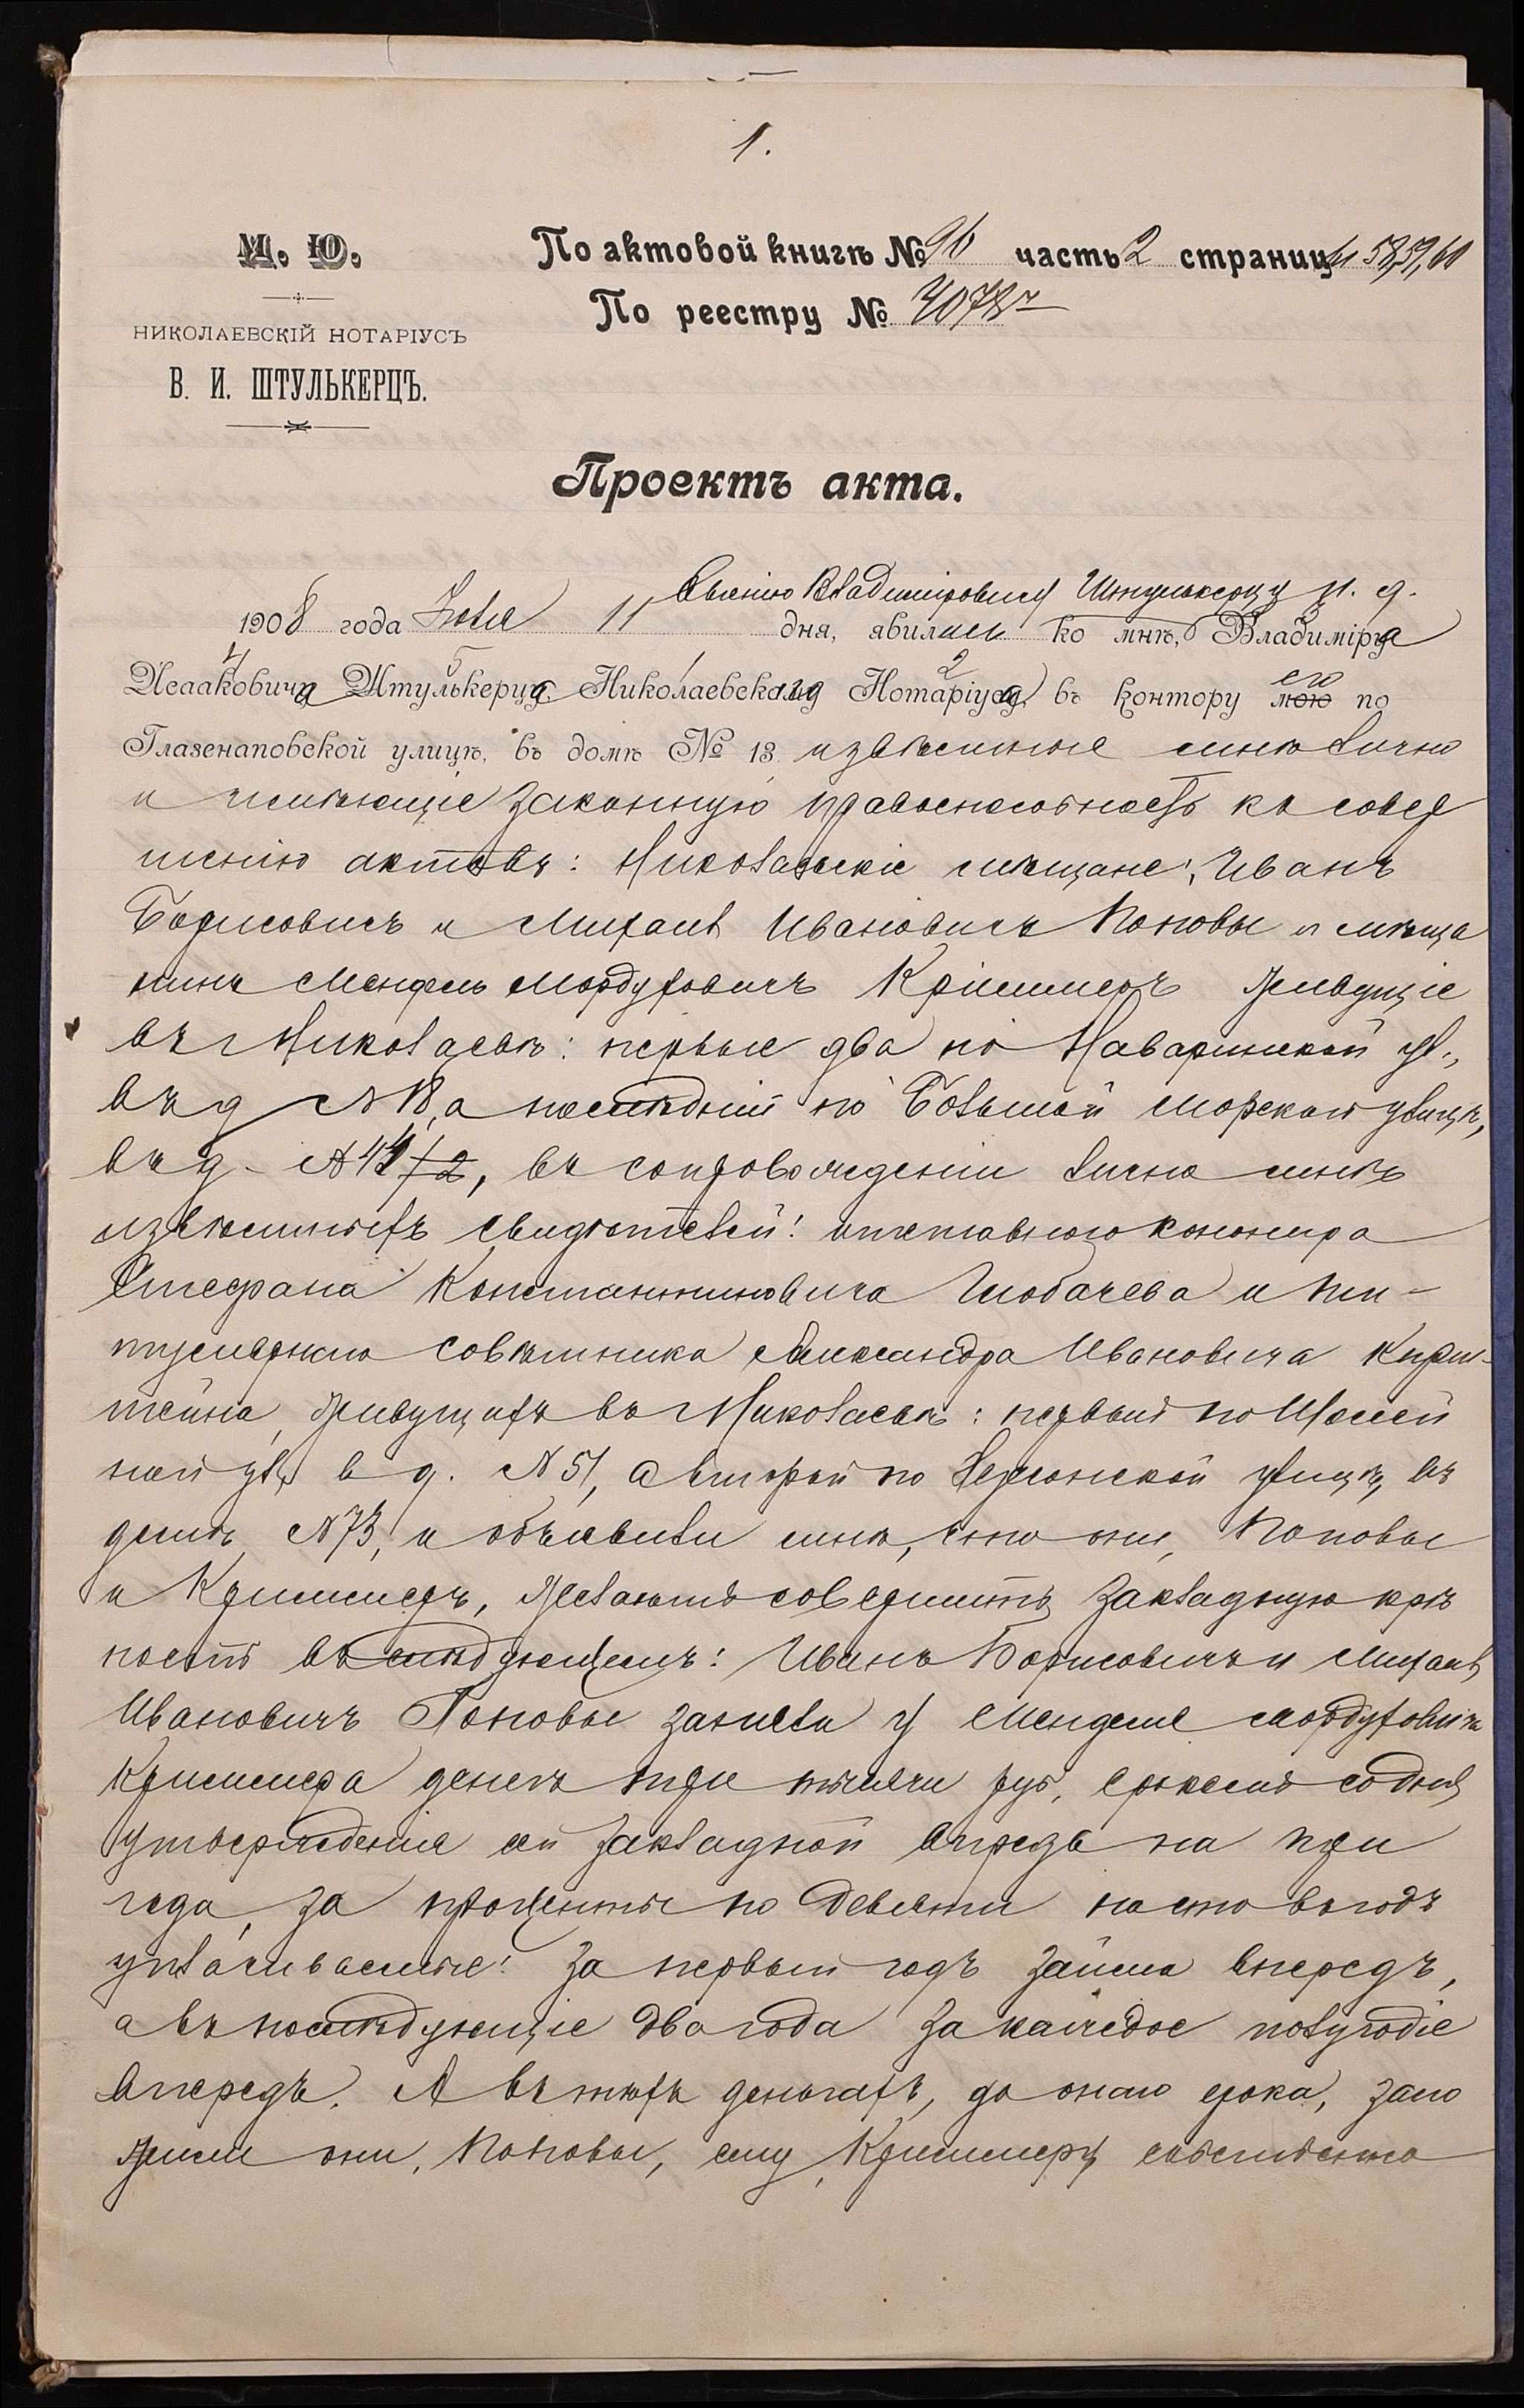 1.
М. Ю.
По актовой книгѣ № 96 часть 2 страницы 58,59,60
По реестру № 4078
НИКОЛАЕВСКІЙ НОТАРІУСЪ
В. И. ШТУЛЬКЕРЦЪ.
Проектъ акта.
Владиміровичу Штулькерцу и. д.
1908 года Іюля 11 дня, явились ко мнѣ, Владиміра
4 5 1 2 3
Исааковича Штулькерца, Николаевскаго Нотаріуса, въ контору мою его по
Глазенаповской улицѣ, въ домѣ № 13 извѣстные мнѣ лично
и имѣющіе законную правоспособность къ совер
шенію актовъ: Николаевскіе мѣщане: Иванъ
Борисовичъ и Михаилъ Ивановичъ Поповы и мѣща
нинъ Мендель Мордуховичъ Криммеръ живущіе
въ Николаевѣ: первые два по Наваринской ул.,
въ д № 18, а послѣдній по Большой Морской улицѣ,
въ д. № /2, въ сопровожденіи лично мнѣ
извѣстныхъ свидѣтелей: отставного
Стефана Константиновича и ти-
тулярнаго совѣтника Александра Ивановича
живущихъ въ Николаевѣ: первый по
ной ул, в д. № 51, а второй по Херсонской улицѣ, въ
домѣ № 73, и объявили мнѣ, что они, Поповы
и Криммеръ, желаютъ совершить закладную крѣ
пость въ слѣдующемъ: Иванъ Борисовичъ и Михаилъ
Ивановичъ Поповы заняли у Менделя Мордуховича
Криммера денегъ три тысячи руб, срокомъ со дня
утвержденія сей закладной впредь на три
года, за проценты по девяти на сто въ годъ
уплачиваемые: за первый годъ займа впередъ,
а въ послѣдующіе два года за каждое полугодіе
впередъ. А въ тѣхъ деньгахъ, до онаго срока, зало
жили они, Поповы, ему, Криммеру собственно